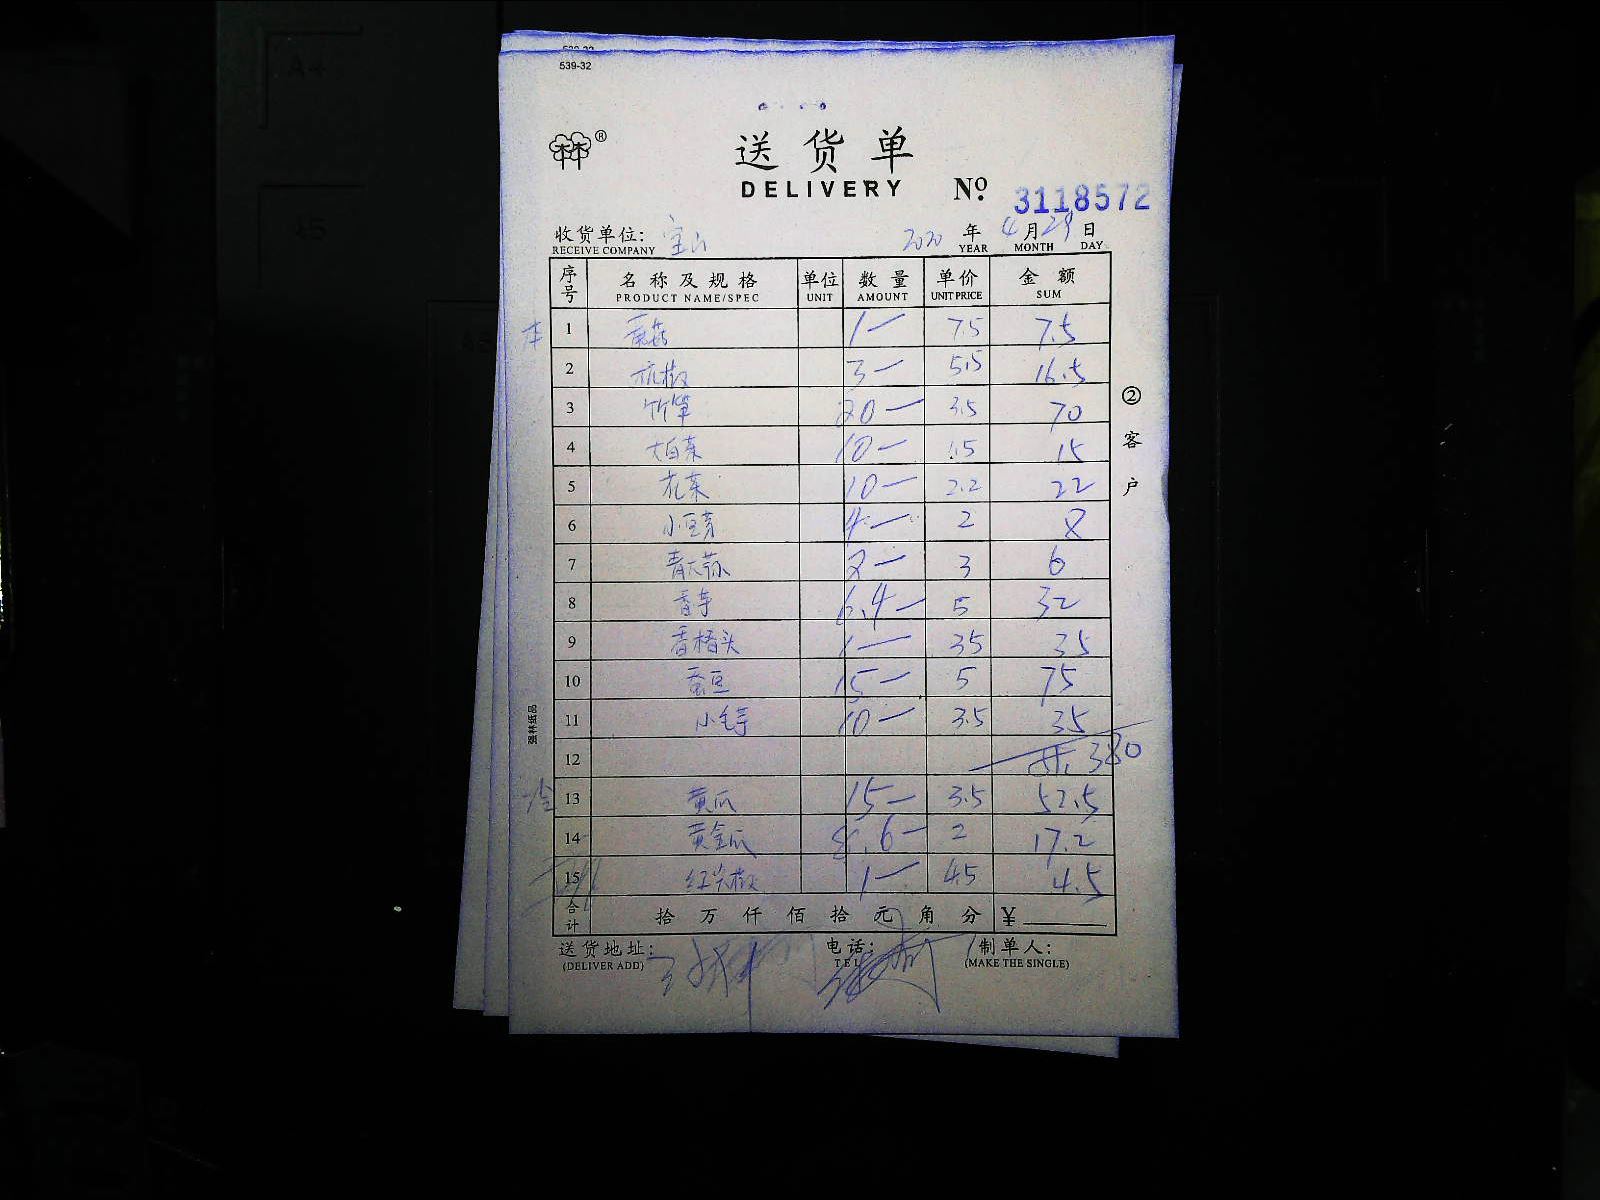 539-32
®
送货单
DELIVERY Nº. 3118572
收货单位: 宝山 2020 年 4 月 29 日
RECEIVE COMPANY YEAR MONTH DAY
序号 名称及规格 单位 数量 单价 金额
PRODUCT NAME/SPEC UNIT AMOUNT UNIT PRICE SUM
1 香菇 1— 7.5 7.5
2 杭椒 3— 5.5 16.5
3 竹笋 20— 3.5 70
4 大白菜 10— 1.5 15
5 花菜 10— 2.2 22
6 小豆芽 4— 2 8
7 青大蒜 2— 3 6
8 香芋 6.4— 5 32
9 1— 35 35
10 蚕豆 15— 5 75
11 小毛芋 10— 3.5 35
12 380
13 黄瓜 15— 3.5 52.5
14 黄金瓜 8.6— 2 17.2
15 红尖椒 1— 4.5 4.5
合计 拾万仟佰拾元角分 ¥
送货地址: 电话: 制单人:
(DELIVER ADD) TEL (MAKE THE SINGLE)
②客户
强林纸品